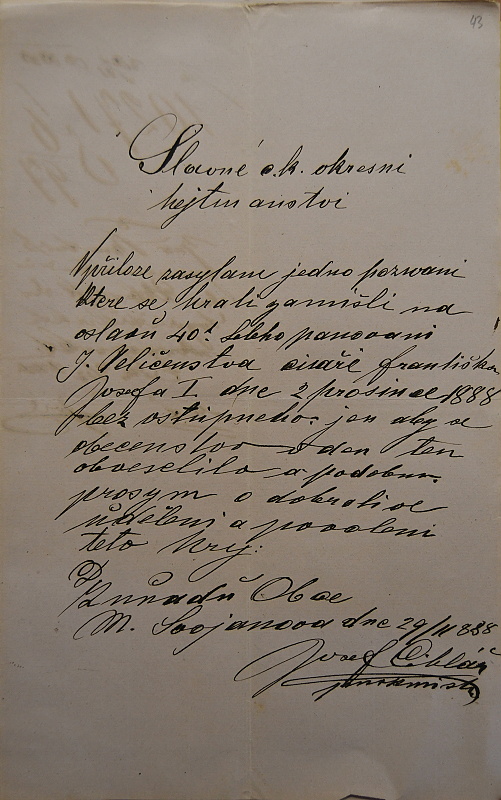 43
Slavné c.k. okresni
hejtmanstvi
Vpřiloze zasylam jedno pozvani
ktere se hrati zamišli na
oslavů 40ti leteho panovani
J. Veličenstva cisáře františka
Josefa I. dne 2 prosince 1888
bez vstupneho. jen aby se
obecenstvo v den ten
obveselilo a podobnu
prosym o dobrotive
uděleni a povoleni
teto hry:
Z uřadů Obce
M. Svojanova dne 29/11 888
Josef
purkmistr